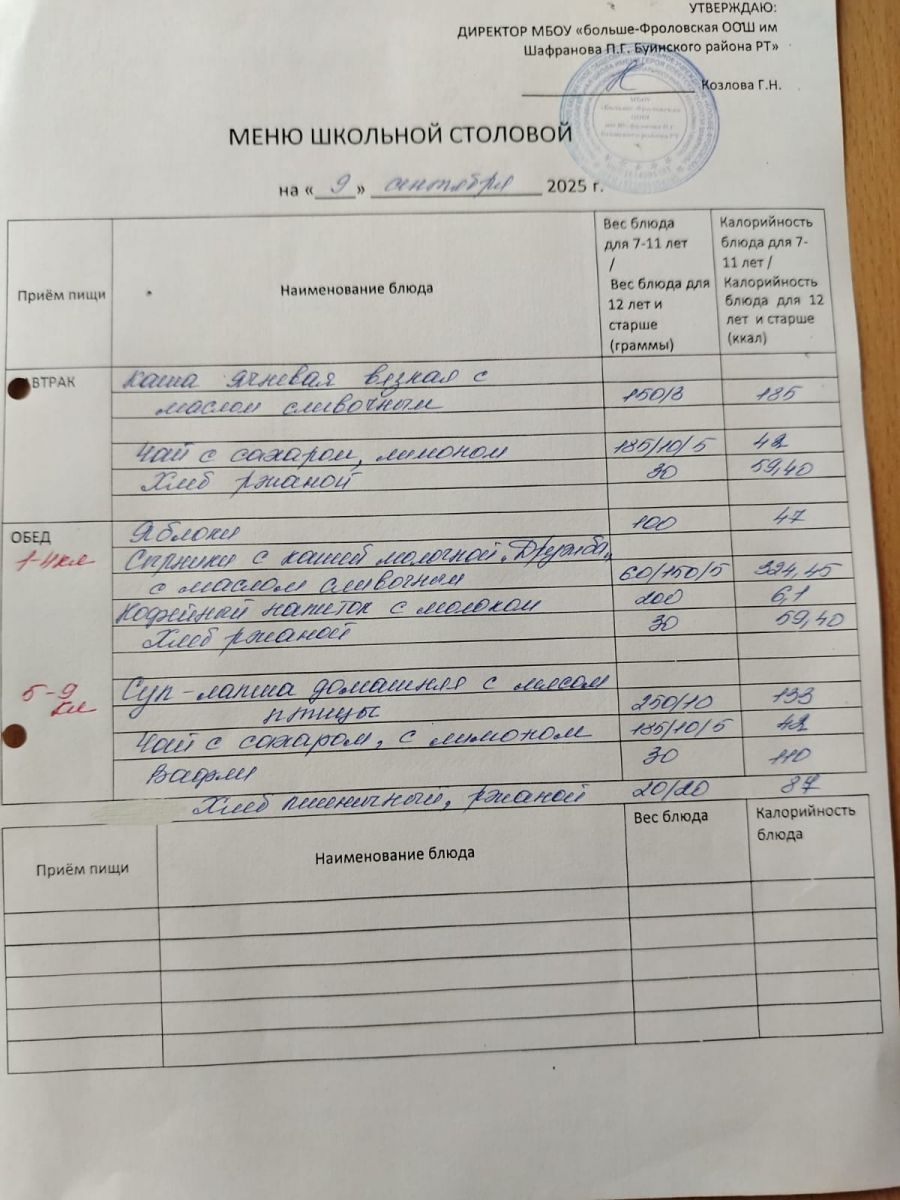 УТВЕРЖДАЮ:
ДИРЕКТОР МБОУ «больше-Фроловская ООШ им
Шафранова П.Г. Буинского района РТ»
Козлова Г.Н.
МЕНЮ ШКОЛЬНОЙ СТОЛОВОЙ
на « 9 » сентября 2025 г.
Приём пищи
Наименование блюда
Вес блюда
для 7-11 лет
/
Вес блюда для
12 лет и
старше
(граммы)
Калорийность
блюда для 7-
11 лет /
Калорийность
блюда для 12
лет и старше
(ккал)
АВТРАК
Каша ячневая вязкая с
маслом сливочным 150/3 185
Чай с сахаром, лимоном 185/10/5 42
Хлеб ржаной 30 59,40
ОБЕД
Яблоки 100 47
1-4кл
Сырники с кашей молочной "Дружба"
с маслом сливочным 60/150/5 324,45
Кофейный напиток с молоком 200 6,1
Хлеб ржаной 30 59,40
5-9
кл
Суп-лапша домашняя с мясом
птицы 250/10 133
Чай с сахаром, с лимоном 185/10/5 42
Вафли 30 110
Хлеб пшеничный, ржаной 20/20 87
Приём пищи
Наименование блюда
Вес блюда
Калорийность
блюда